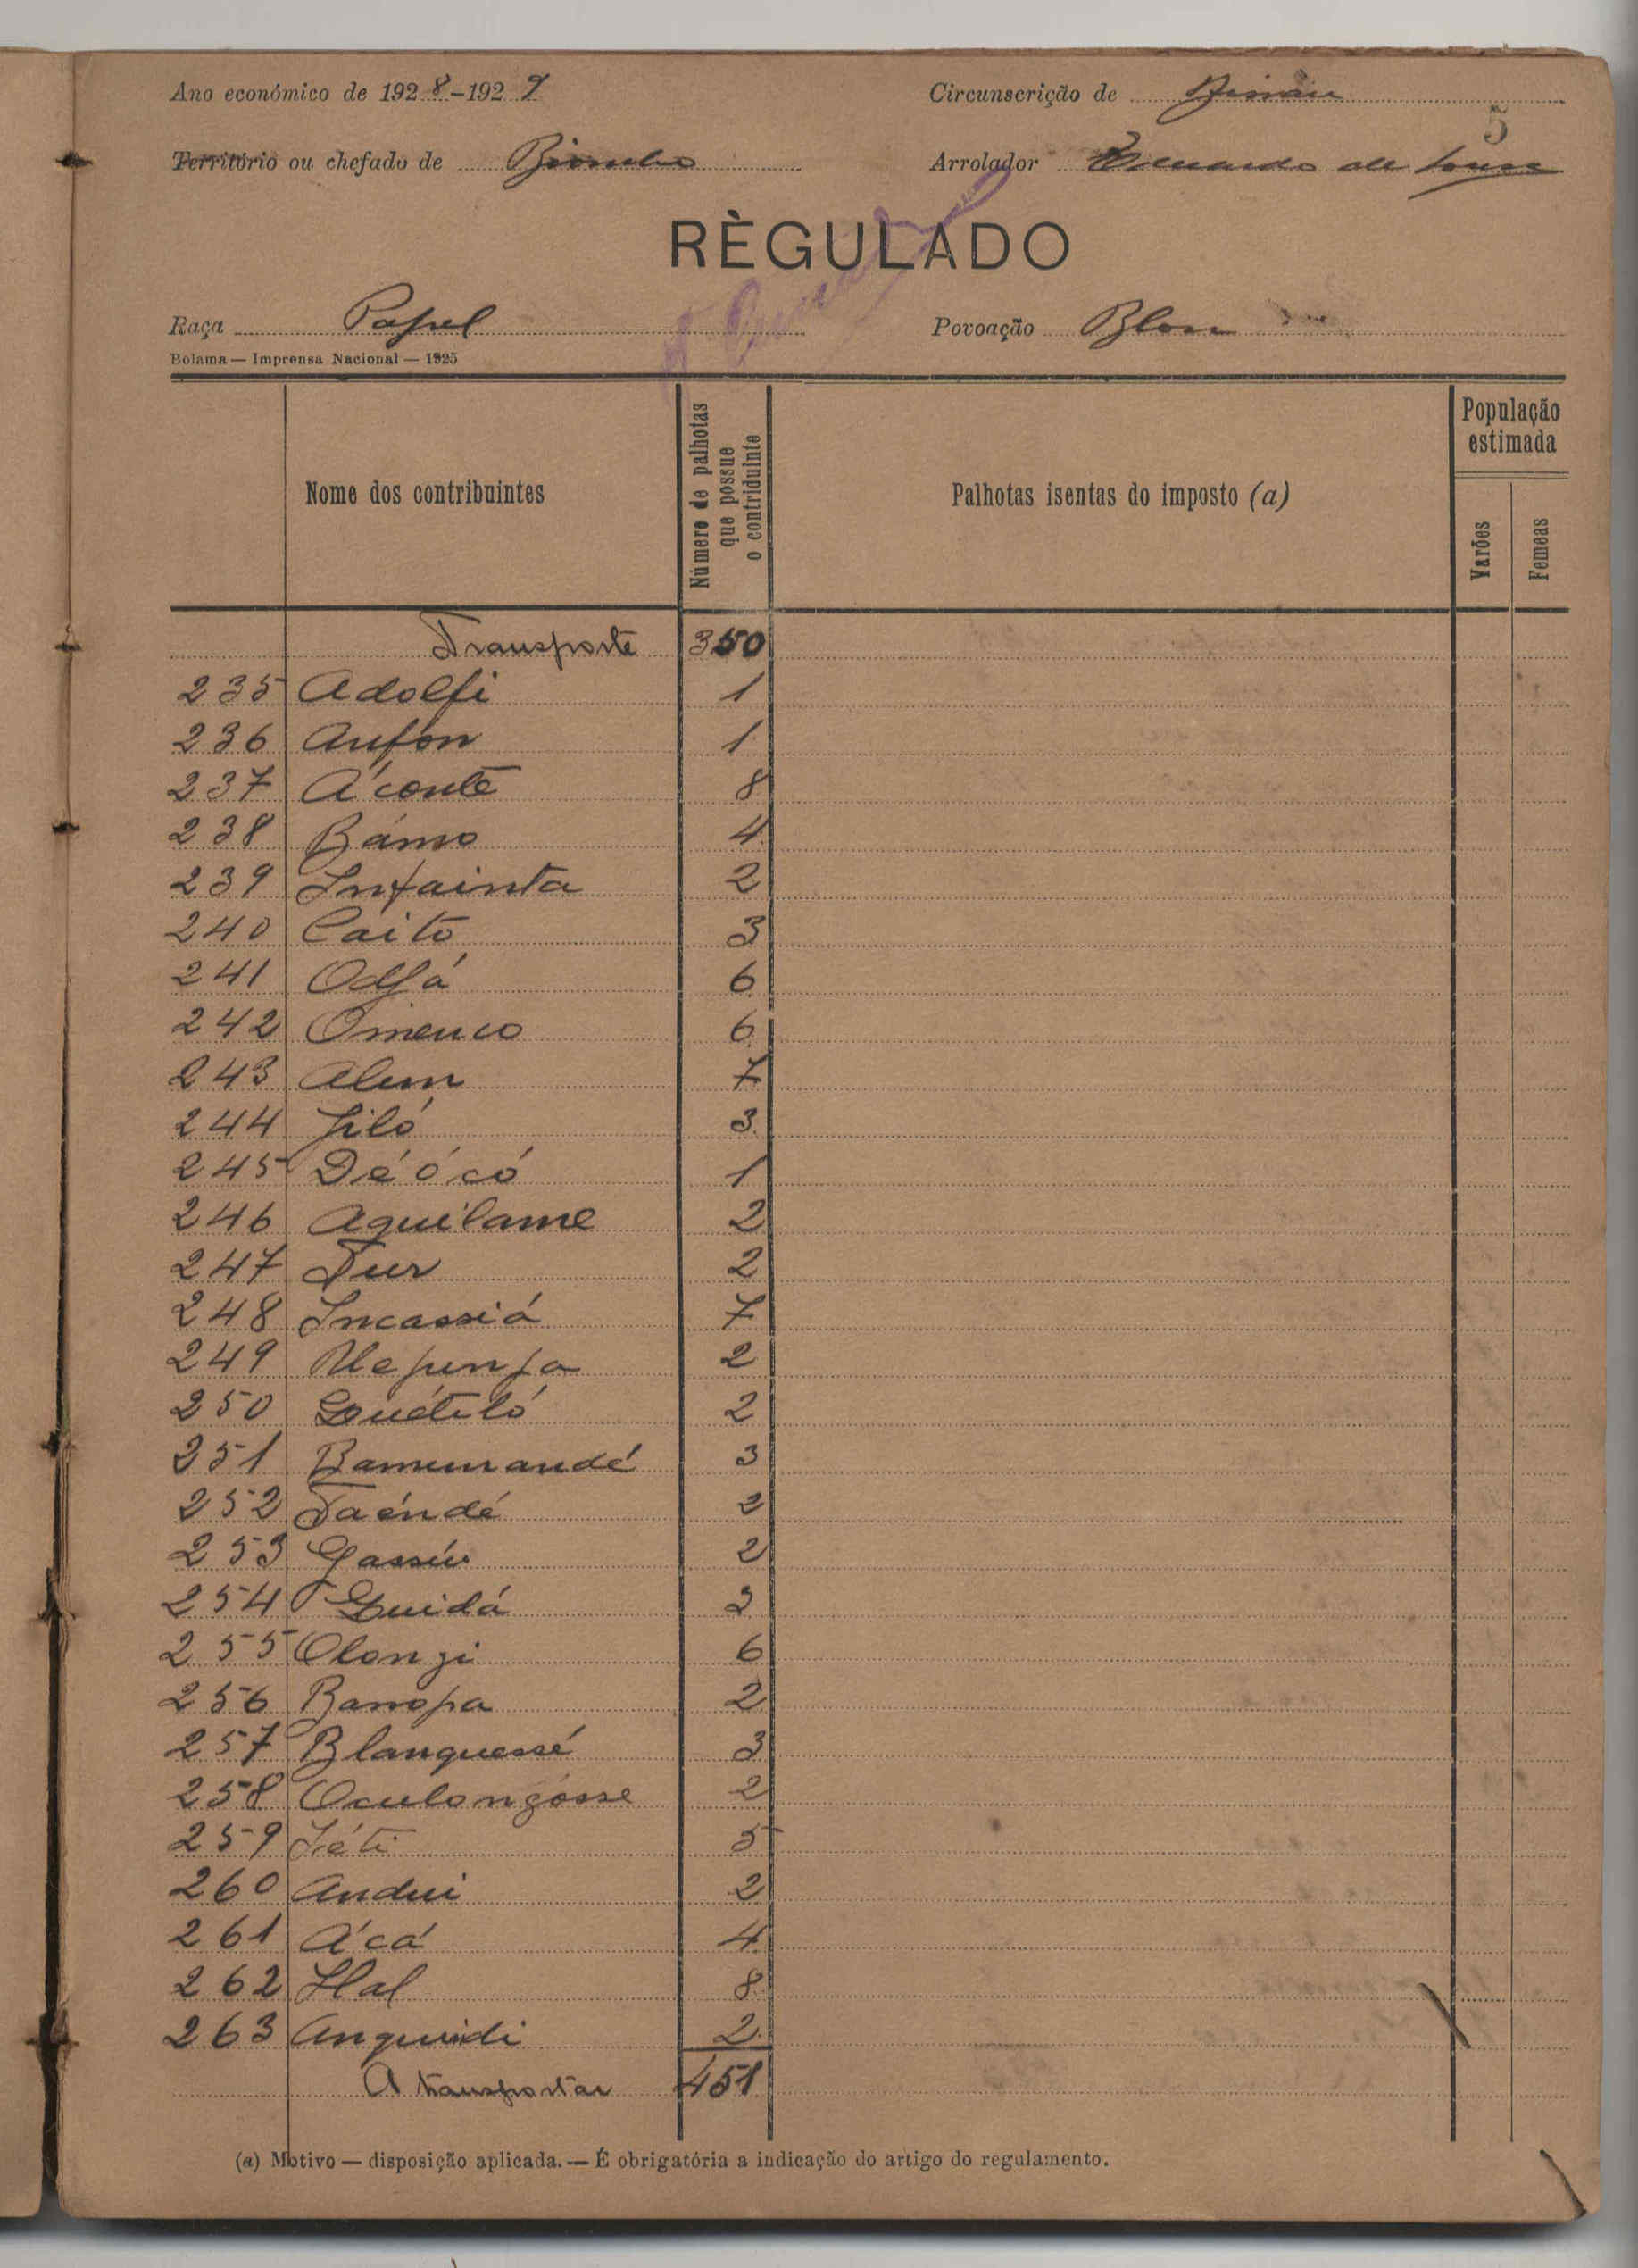 Ano económico de 1928-1929
Circunscrição de Bissau
5
Território ou chefado de Biombo
Arrolador de Sousa
RÈGULADO
Raça Papel
Povoação Blon
Bolama — Imprensa Nacional — 1925
Nome dos contribuintes
Número de palhotas que possue o contriduinte
Palhotas isentas do imposto (a)
População estimada
Varões
Femeas
Transporte 350
235 Adolfi 1
236 Aufon 1
237 A'conte 8
238 Bámo 4
239 Infainta 2
240 Caito 3
241 Odjá 6
242 Omenco 6
243 Alem 7
244 Jiló 3
245 Dé ó có 1
246 Aquilame 2
247 Tur 2
248 Incassiá 7
249 2
250 Guétiló 2
251 3
252 Taéndé 2
253 Gassiu 2
254 Guidá 2
255 Olonji 6
256 Banopa 2
257 Blanquessé 3
258 Oculongosse 2
259 Iéti 5
260 Andui 2
261 A'cá 4
262 Hal 8
263 Anguidi 2
A transportar 451
(a) Motivo — disposição aplicada. — É obrigatória a indicação do artigo do regulamento.